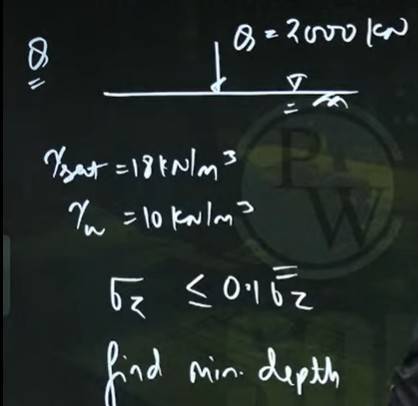 Q
Q = 2000 kN
γsat = 18 kN/m³
γw = 10 kN/m³
σz ≤ 0.1 σ̄z
find min. depth
PW